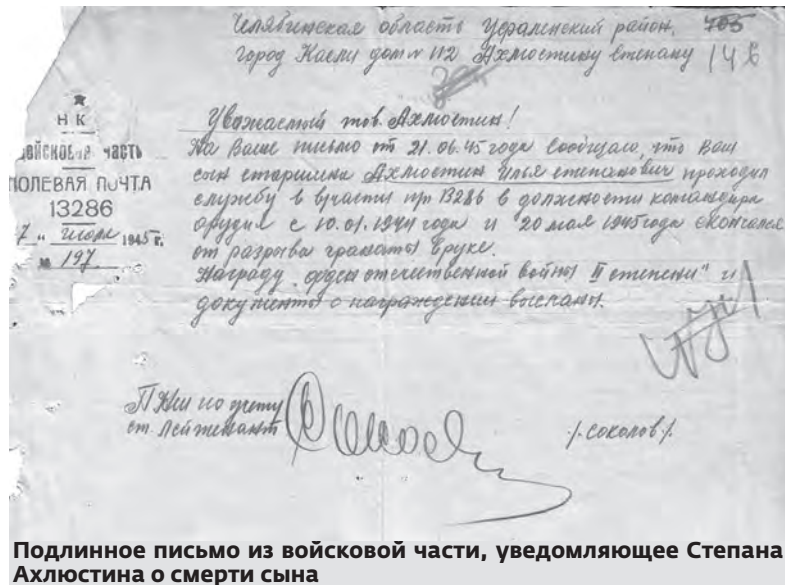 Челябинская область Уфалейский район, 705
город Касли дом № 112 Ахлюстину Степану 14 в
НК
войсковая часть
ПОЛЕВАЯ ПОЧТА
13286
7 " июля 1945 г.
№ 197
Уважаемый тов. Ахлюстин!
На Ваше письмо от 21.06.45 года сообщаю, что Ваш
сын старшина Ахлюстин Илья степанович проходил
службу в в/части пп 13286 в должности командира
орудия с 10.01.1944 года и 20 мая 1945 года скончался
от разрыва гранаты в руке.
Награду "орден отечественной войны II степени" и
документы о награждении высланы.
ПНШ по учету
ст. лейтенант
/. соколов /.
Подлинное письмо из войсковой части, уведомляющее Степана
Ахлюстина о смерти сына